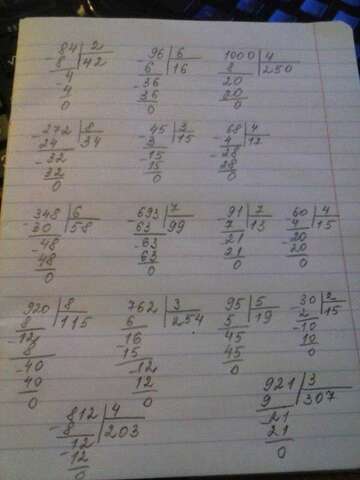 84 2
-8 42
4
-4
0
-96 6
6 16
-36
36
0
1000 4
8 250
20
20
0
-272 8
24 34
-32
32
0
-45 3
3 15
-15
15
0
-68 4
4 17
-28
28
0
-348 6
30 58
-48
48
0
-693 7
63 99
-63
63
0
-91 7
7 13
-21
21
0
60 4
-4 15
-20
20
0
920 8
8 115
-12
8
-40
40
0
762 3
6 254
-16
15
-12
12
0
95 5
5 19
45
45
0
30 2
2 15
-10
10
0
812 4
-8 203
-12
12
0
921 3
9 307
-21
21
0